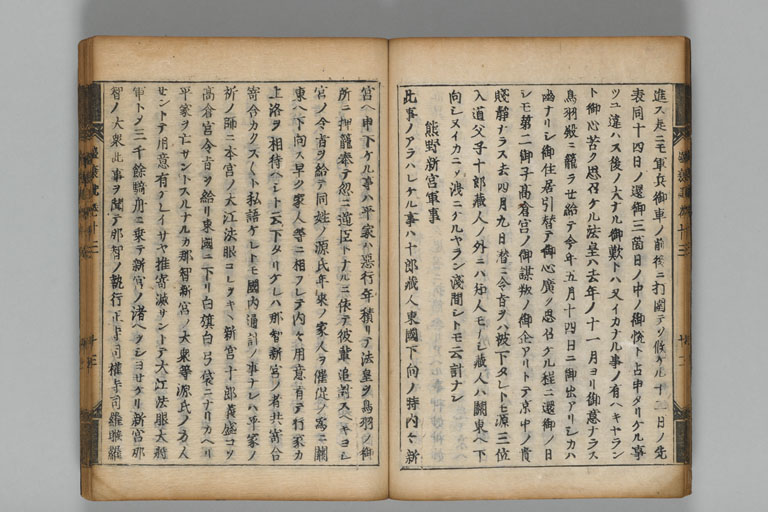 進ス是ニモ軍兵御車ノ前後ニ打圍テソ候ケル十 日ノ先
表同十四日ノ還御三箇日ノ中ノ御悦ト占申タリケル事
ツユ違ハス後ノ大ナル御歎トハ又イカナル事ノ有ヘキヤラン
ト御心苦ク思召ケル法皇ハ去年ノ十一月ヨリ御意ナラス
鳥羽殿ニ籠ラセ給テ今年五月十四日ニ御出アリシカハ
ナリシ御住居引替テ御心廣ク思召ケル程ニ還御ノ日
シモ第二御子高倉宮ノ御謀叛ノ御企アリトテ京中ノ貴
賤静ナラス去四月九日潜ニ令旨ヲハ被下タレトモ源三位
入道父子十郎藏人ノ外ニハ 人モナシ藏人ハ關東ヘ下
向シヌイカニシテ洩ニケルヤラン淺間シトモ云計ナシ
熊野新宮軍事
此事ノアラハレケル事ハ十郎藏人東國下向ノ時内々新
宮ヘ申下ケル事ハ平家ハ悪行年積リテ法皇ヲ鳥羽ノ御
所ニ押籠奉テ忽ニ逆臣トナルニ依テ彼輩追討スヘキヨシ
宮ノ令旨ヲ給テ同姓ノ源氏年來ノ家人ヲ催促ノ爲ニ關
東ヘ下向ス早ク家人等ニ相フレテ内々用意有テ行家カ
上洛ヲ相待ヘシト云下タリケレハ那智新宮ノ者共寄合
寄合カクスヘシト私語ケレトモ國内通計ノ事ナレハ平家ノ
祈ノ師ニ本宮ノ大江法眼コレヲキヽ新宮十郎義盛コソ
高倉宮令旨ヲ給リ東國ニ下リ白旗白弓袋ニナリカヘリ
平家ヲ亡サントスルナルカ那智新宮ノ大衆等源氏ノ方人
セントテ用意有ケレイサヤ推寄滅サントテ大江法眼大將
軍トメ三千餘騎舟ニ乗テ新宮ノ渚ヘヲシヨセケリ新宮那
智ノ大衆此事ヲ聞テ那智ノ執行正寺司權寺司羅睺羅